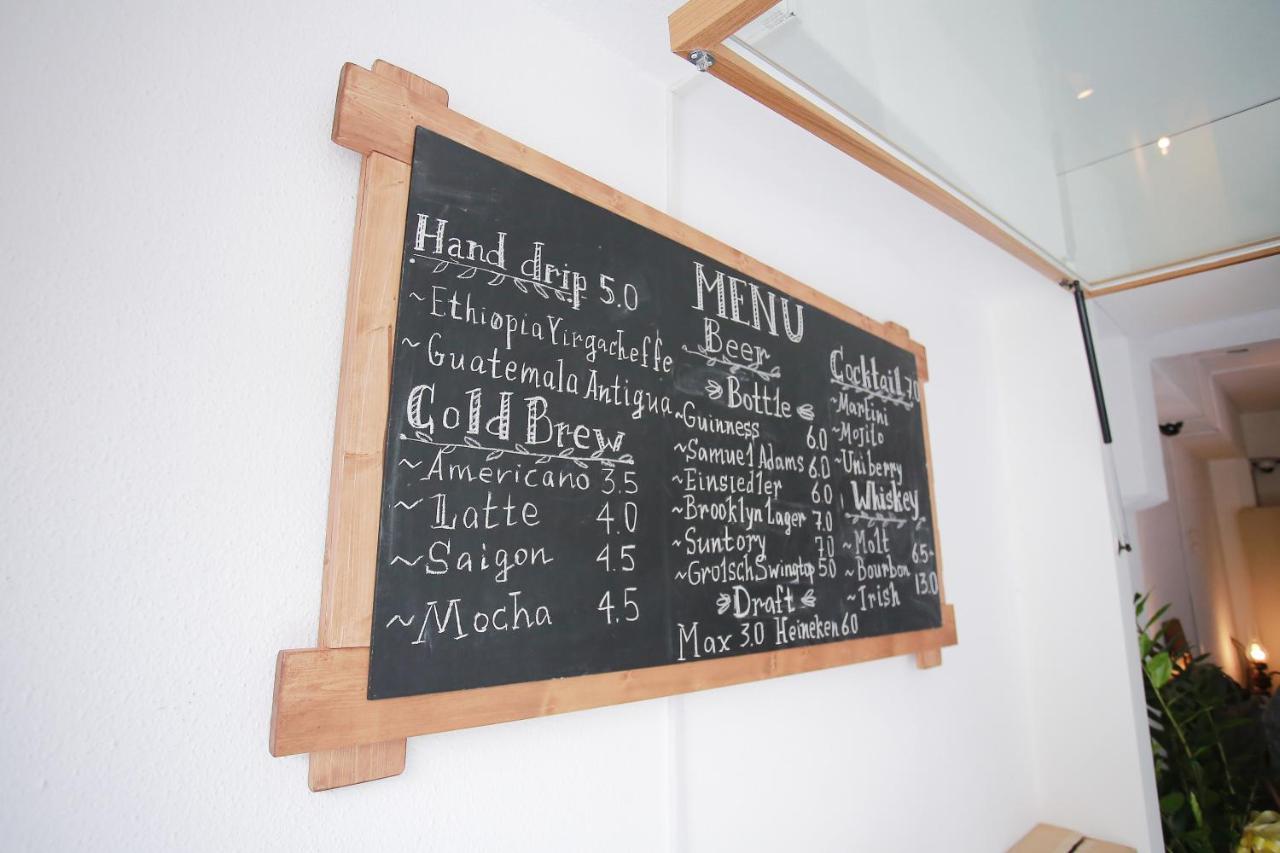 Hand drip 5.0
~Ethiopia Yirgacheffe
~Guatemala Antigua
Cold Brew
~Americano 3.5
~Latte 4.0
~Saigon 4.5
~Mocha 4.5
MENU
Beer
Bottle
~Guinness 6.0
~Samuel Adams 6.0
~Einsiedler 6.0
~Brooklyn lager 7.0
~Suntory 7.0
~Grolsch Swingtop 5.0
Draft
Max 3.0 Heineken 6.0
Cocktail 7.0
~Martini
~Mojito
~Uniberry
Whiskey
~Molt 6.5~
~Bourbon 13.0
~Irish